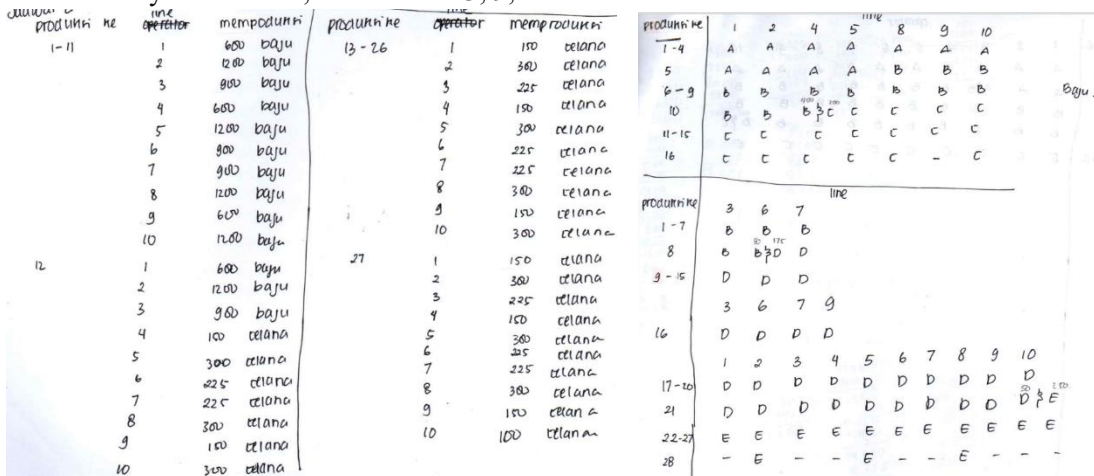 produksi ke line operator memproduksi
1-11 1 600 baju
2 1200 baju
3 900 baju
4 600 baju
5 1200 baju
6 900 baju
7 900 baju
8 1200 baju
9 600 baju
10 1200 baju
12 1 600 baju
2 1200 baju
3 900 baju
4 150 celana
5 300 celana
6 225 celana
7 225 celana
8 300 celana
9 150 celana
10 300 celana
produksi ke line operator memproduksi
13-26 1 150 celana
2 300 celana
3 225 celana
4 150 celana
5 300 celana
6 225 celana
7 225 celana
8 300 celana
9 150 celana
10 300 celana
27 1 150 celana
2 300 celana
3 225 celana
4 150 celana
5 300 celana
6 225 celana
7 225 celana
8 300 celana
9 150 celana
10 100 celana
line
produksi ke 1 2 4 5 8 9 10
1-4 A A A A A A A
5 A A A A B B B
6-9 B B B B B B B
Baju
10 B B B C C C C C
11-15 C C C C C C C
16 C C C C C - C
line
produksi ke 3 6 7
1-7 B B B
8 B B D D
50 175
9-15 D D D
3 6 7 9
16 D D D D
1 2 3 4 5 6 7 8 9 10
17-20 D D D D D D D D D D
21 D D D D D D D D D D E
50 250
22-27 E E E E E E E E E E E
28 - E - - E - - E - -